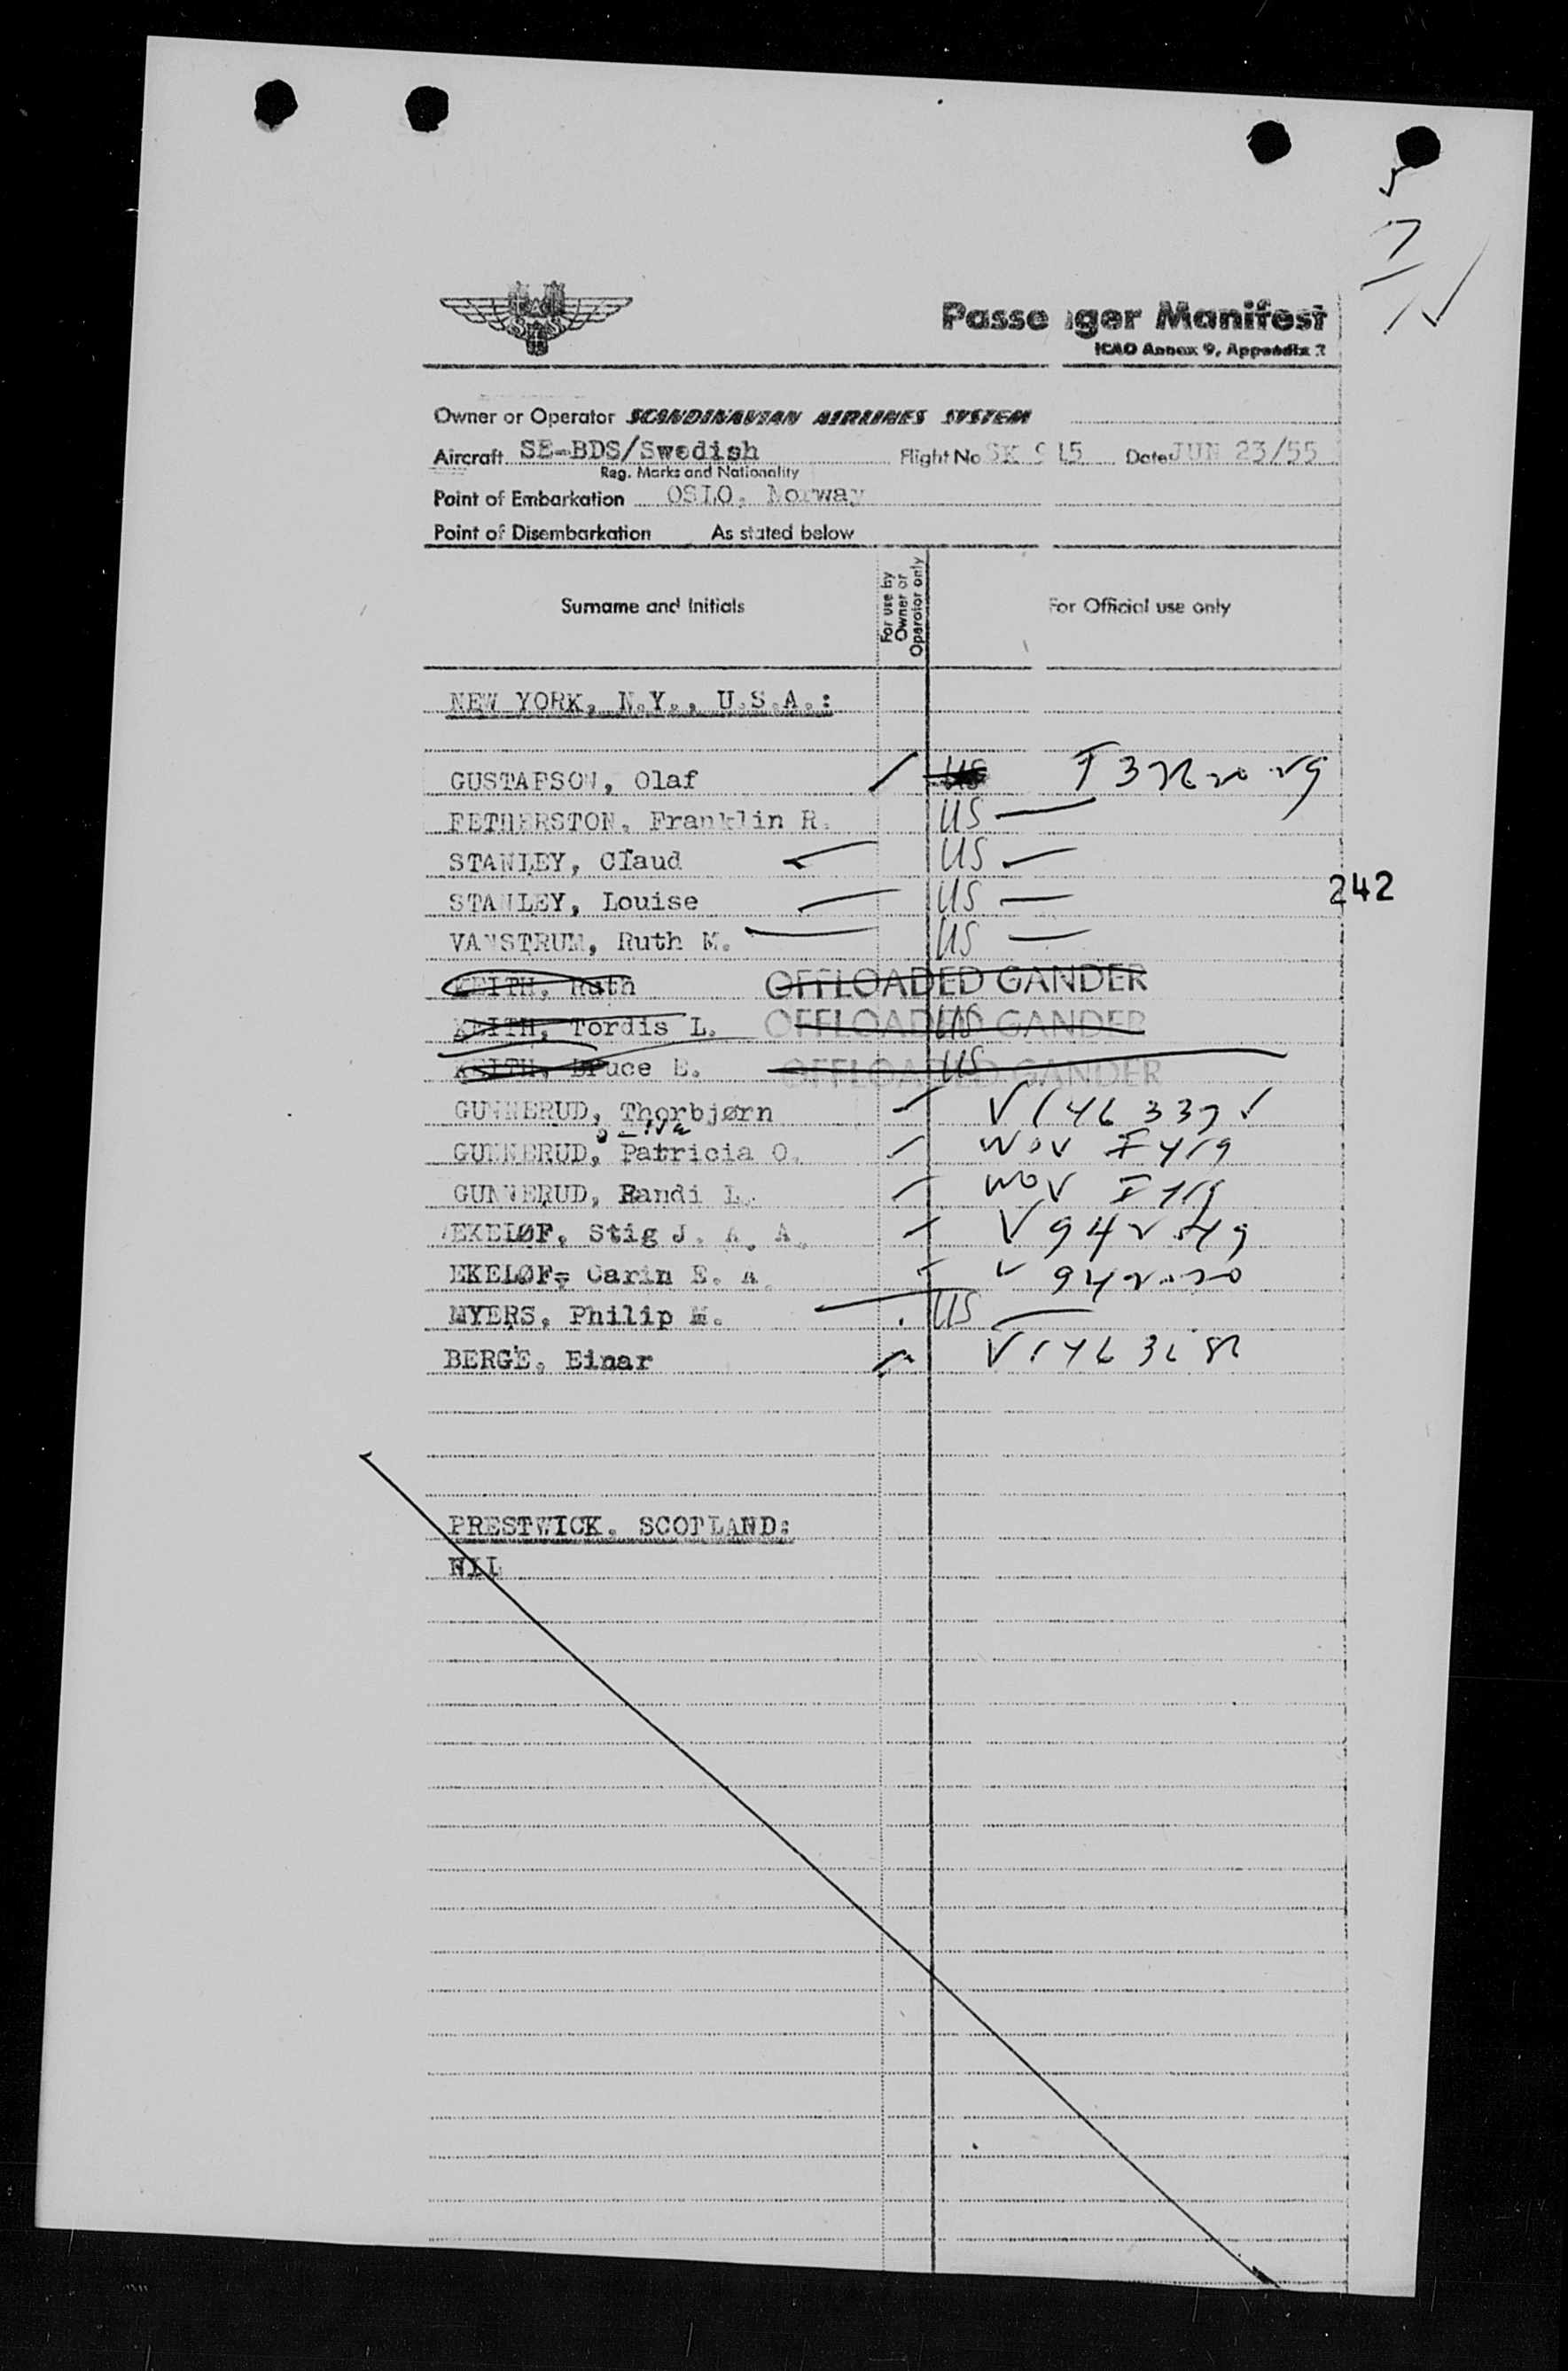 5
7
SAS
Passenger Manifest
ICAO Annex 9, Appendix 2
Owner or Operator SCANDINAVIAN AIRLINES SYSTEM
Aircraft SE-BDS/Swedish Flight No SK 915 Date JUN 23/55
Reg. Marks and Nationality
Point of Embarkation OSLO, Norway
Point of Disembarkation As stated below
Surname and Initials For use by Owner or Operator only For Official use only
NEW YORK, N.Y., U.S.A.:
GUSTAFSON, Olaf US
FETHERSTON, Franklin R. US
STANLEY, Claud US
242
STANLEY, Louise US
VANSTRUM, Ruth M. US
KEITH, Ruth OFFLOADED GANDER
KEITH, Tordis L. OFFLOADED GANDER US
KEITH, Bruce E. OFFLOADED GANDER US
GUNNERUD, Thorbjørn V 146 337
GUNNERUD, Patricia O.
GUNNERUD, Randi L.
EKELØF, Stig J. A. A.
EKELØF, Carin E. A.
MYERS, Philip M. US
BERGE, Einar
PRESTWICK, SCOTLAND:
NIL